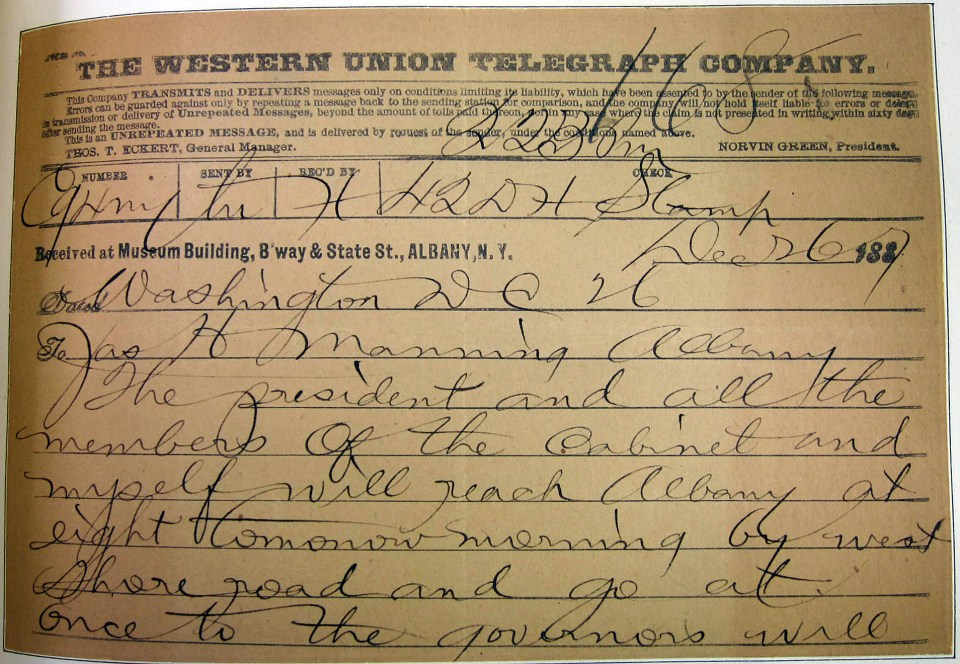 THE WESTERN UNION TELEGRAPH COMPANY.
This Company TRANSMITS and DELIVERS messages only on conditions limiting its liability, which have been assented to by the sender of the following message.
Errors can be guarded against only by repeating a message back to the sending station for comparison, and the company will not hold itself liable for errors or delays
in transmission or delivery of Unrepeated Messages, beyond the amount of tolls paid thereon, nor in any case where the claim is not presented in writing within sixty days
after sending the message.
This is an UNREPEATED MESSAGE, and is delivered by request of the sender, under the conditions named above.
THOS. T. ECKERT, General Manager. NORVIN GREEN, President.
NUMBER SENT BY REC'D BY CHECK
H 42 D H Stamp
Received at Museum Building, B'way & State St., ALBANY, N. Y. Dec 26 1887
Dated Washington DC 26
To Jas H Manning Albany
The president and all the
members of the Cabinet and
myself will reach Albany at
eight tomorrow morning by west
Shore road and go at
once to the governors will